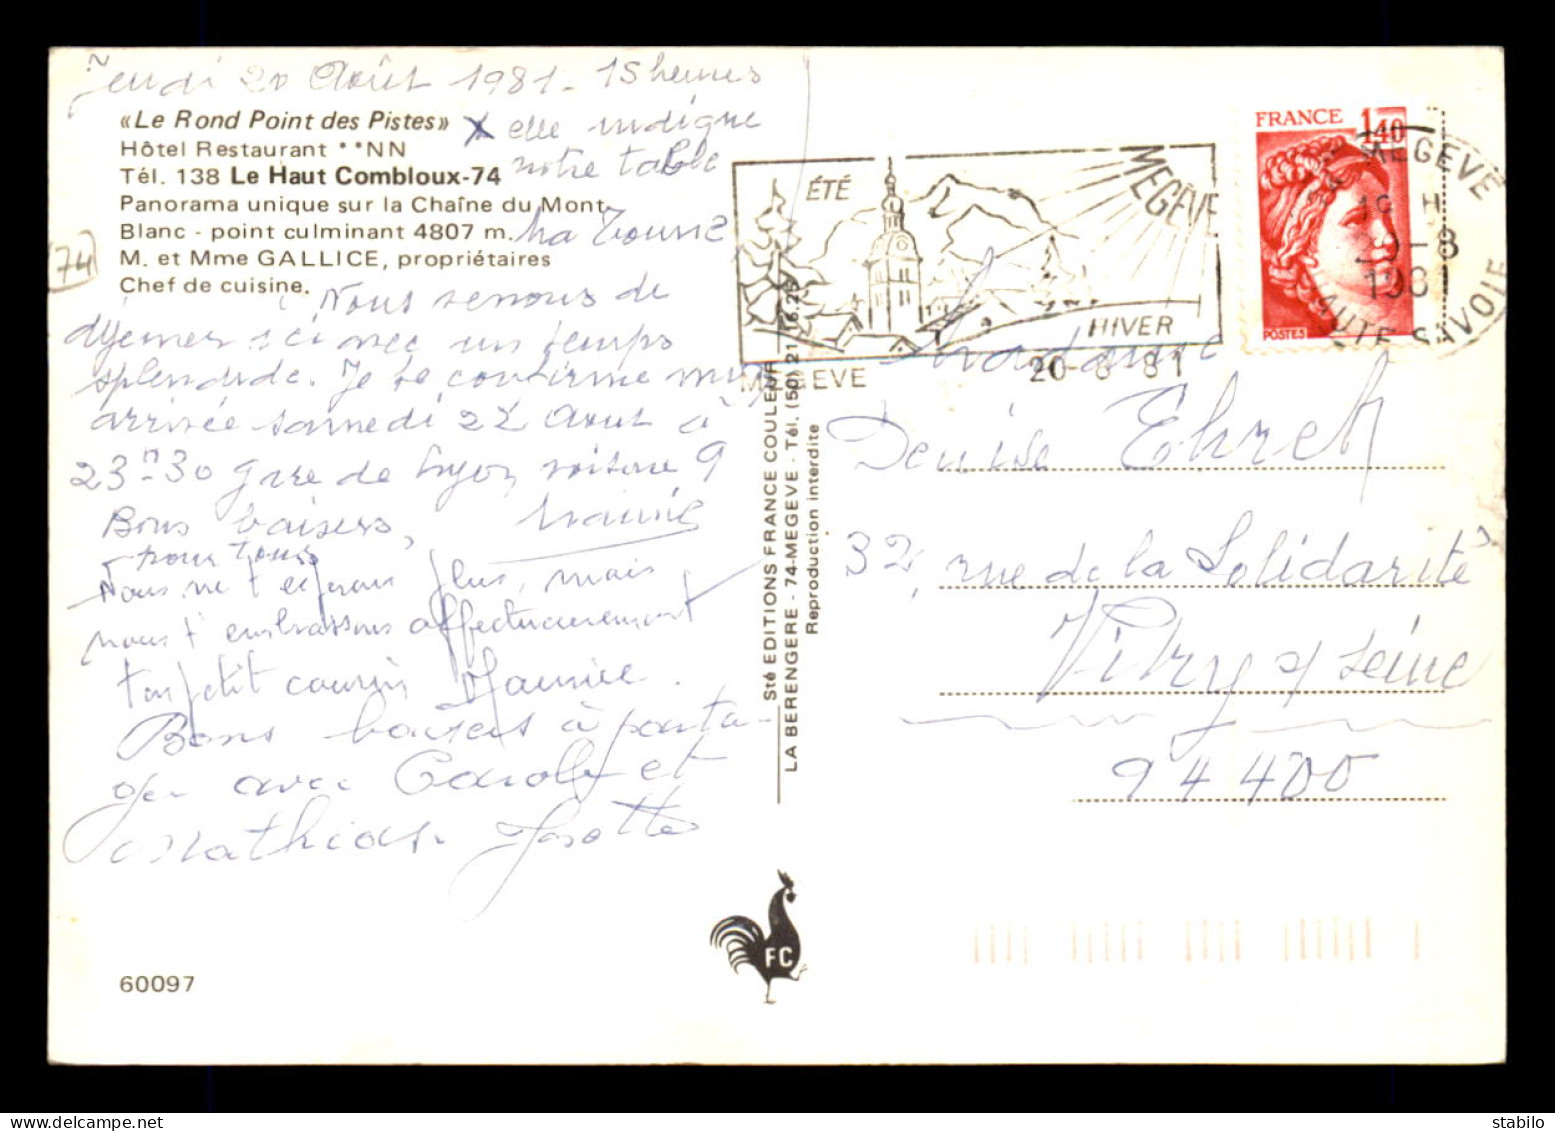 Jeudi 20 Août 1981 - 15 heures
«Le Rond Point des Pistes»
x elle indique
Hôtel Restaurant **NN
notre table
Tél. 138 Le Haut Combloux-74
Panorama unique sur la Chaîne du Mont
Blanc - point culminant 4807 m.
M. et Mme GALLICE, propriétaires
Chef de cuisine.
(74)
Ma
Nous venons de
déjeuner ici avec un temps
splendide. Je te confirme mon
arrivée samedi 22 Août à
23h30 gare de Lyon, voiture 9
Bons baisers,
pour tous
Mamie
Nous ne t'espérons plus, mais
nous t'embrassons affectueusement
ton petit cousin Maurice.
Bons baisers à parta-
ger avec Carole et
Mathias.
60097
Sté EDITIONS FRANCE COULEUR
LA BERENGERE - 74-MEGEVE - Tél. (50) 21.16.25
Reproduction interdite
FC
ÉTÉ
MEGÈVE
HIVER
MEGEVE
20-8-81
FRANCE
1,40
POSTES
MEGEVE
18 H
20-8
1981
HAUTE SAVOIE
Madame
Denise Ehret
32, rue de la Solidarité
Vitry s/ Seine
94400